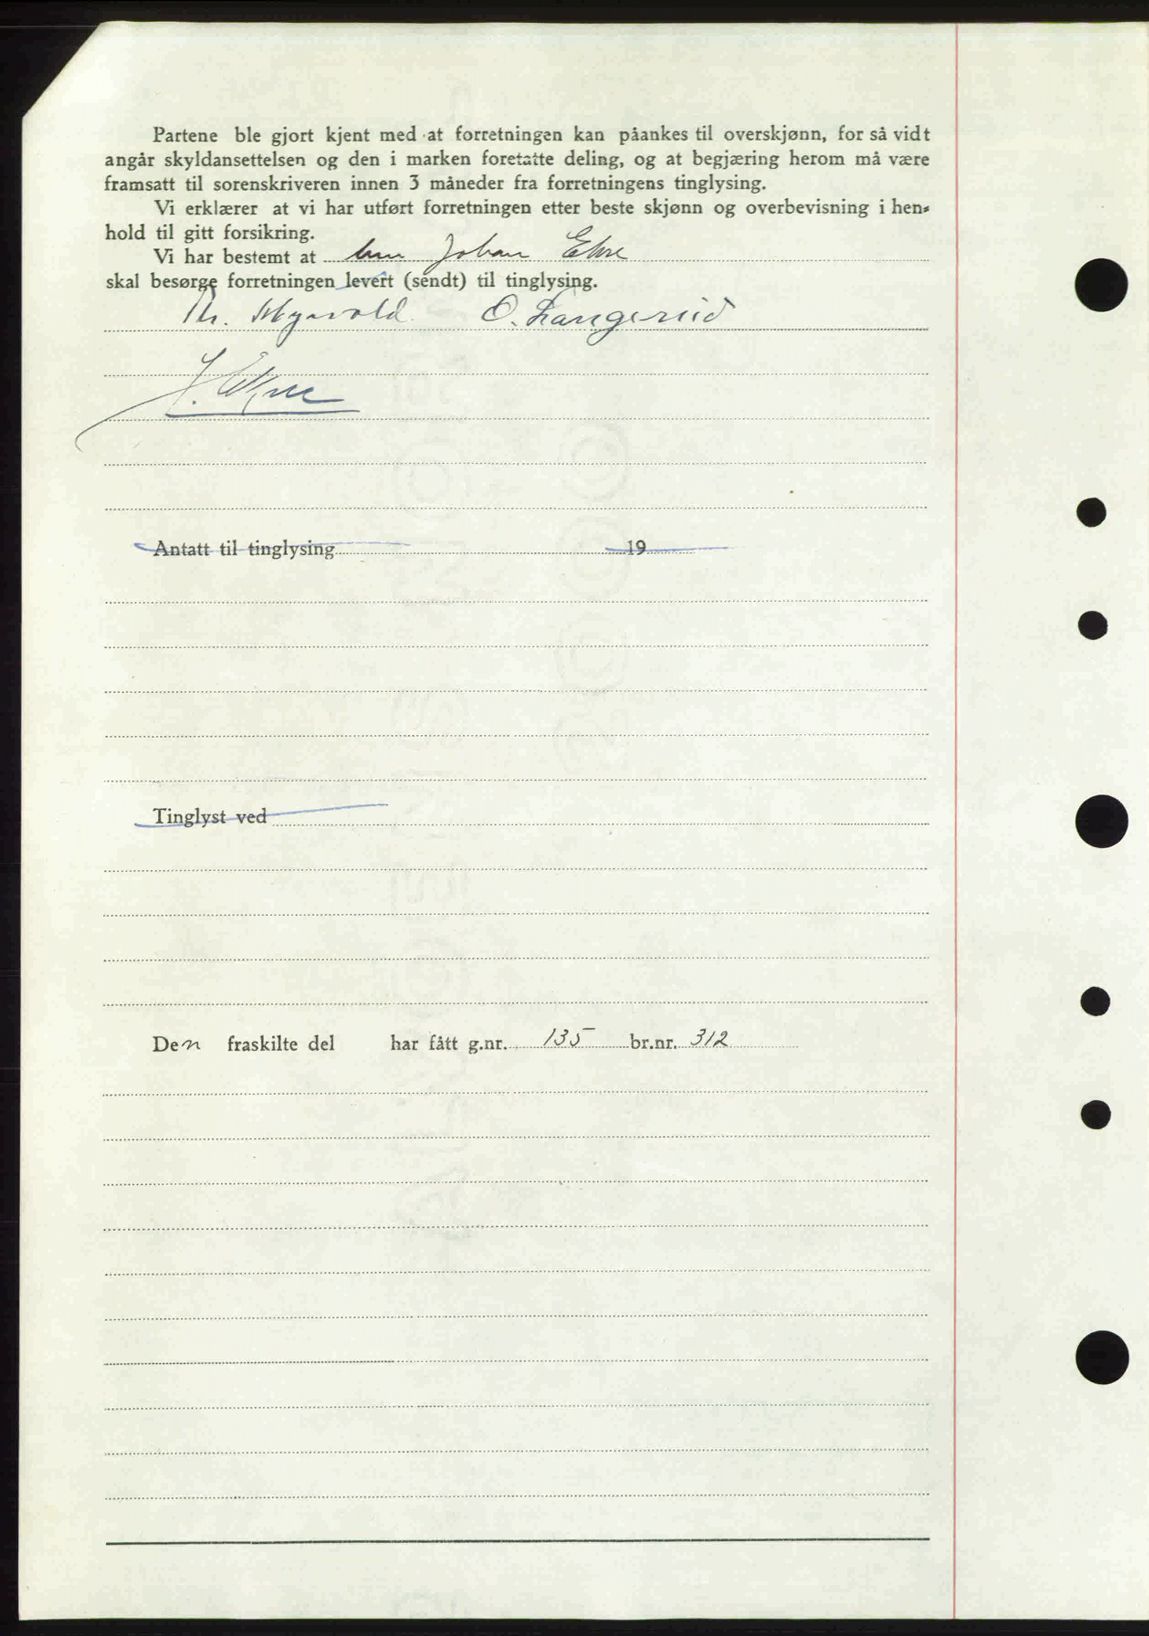 Partene ble gjort kjent med at forretningen kan påankes til overskjønn, for så vidt
angår skyldansettelsen og den i marken foretatte deling, og at begjæring herom må være
framsatt til sorenskriveren innen 3 måneder fra forretningens tinglysing.
Vi erklærer at vi har utført forretningen etter beste skjønn og overbevisning i hen-
hold til gitt forsikring.
Vi har bestemt at Johan
skal besørge forretningen levert (sendt) til tinglysing.
Th. Myrvold O. Langerud
Antatt til tinglysing 19
Tinglyst ved
Den fraskilte del har fått g.nr. 135 br.nr. 312